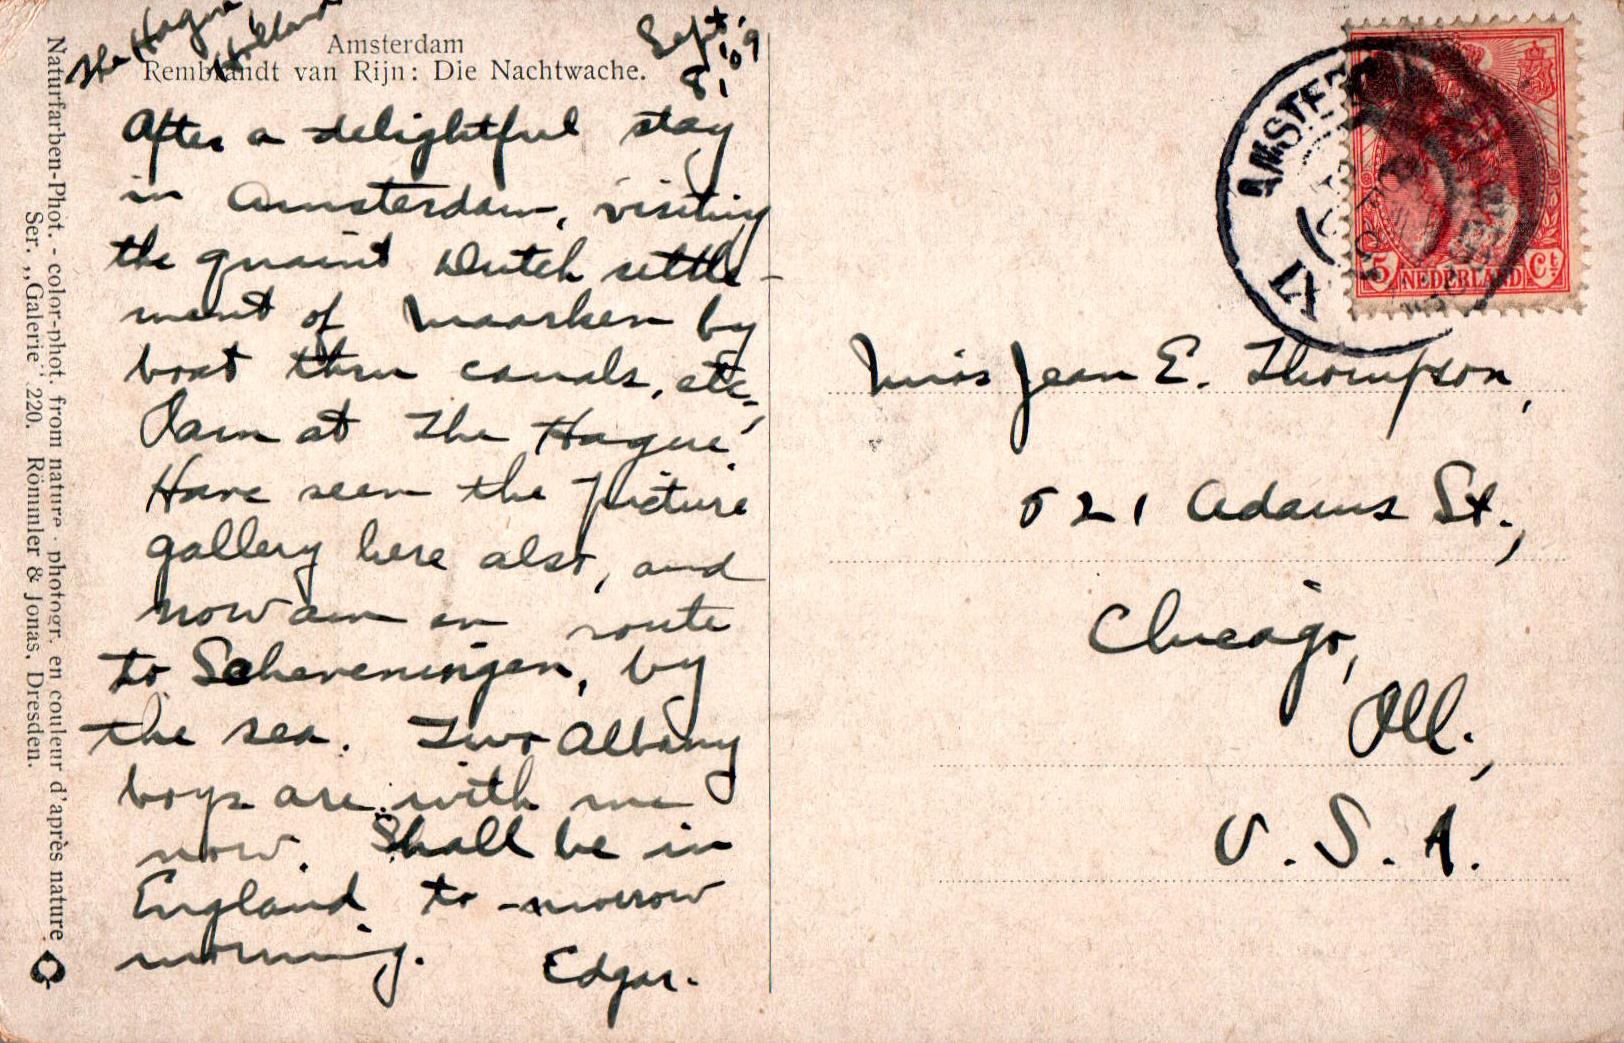 The Hague,
Holland
Sept. 9
'09
8,
Amsterdam
Rembrandt van Rijn: Die Nachtwache.
After a delightful stay
in Amsterdam, visiting
the quaint Dutch settle-
ment of Maarken by
boat thru canals, etc.,
I am at The Hague.
Have seen the picture
gallery here also, and
now am en route
to Scheveningen, by
the sea. Two Albany
boys are with me
now. Shall be in
England to-morrow
morning.
Edgar.
Naturfarben-Phot. - color-phot. from nature - photogr. en couleur d'après nature
Ser. „Galerie" 220. Römmler & Jonas, Dresden.
AMSTERD
5 NEDERLAND Ct
Miss Jean E. Thompson,
521 Adams St.,
Chicago,
Ill.,
U.S.A.